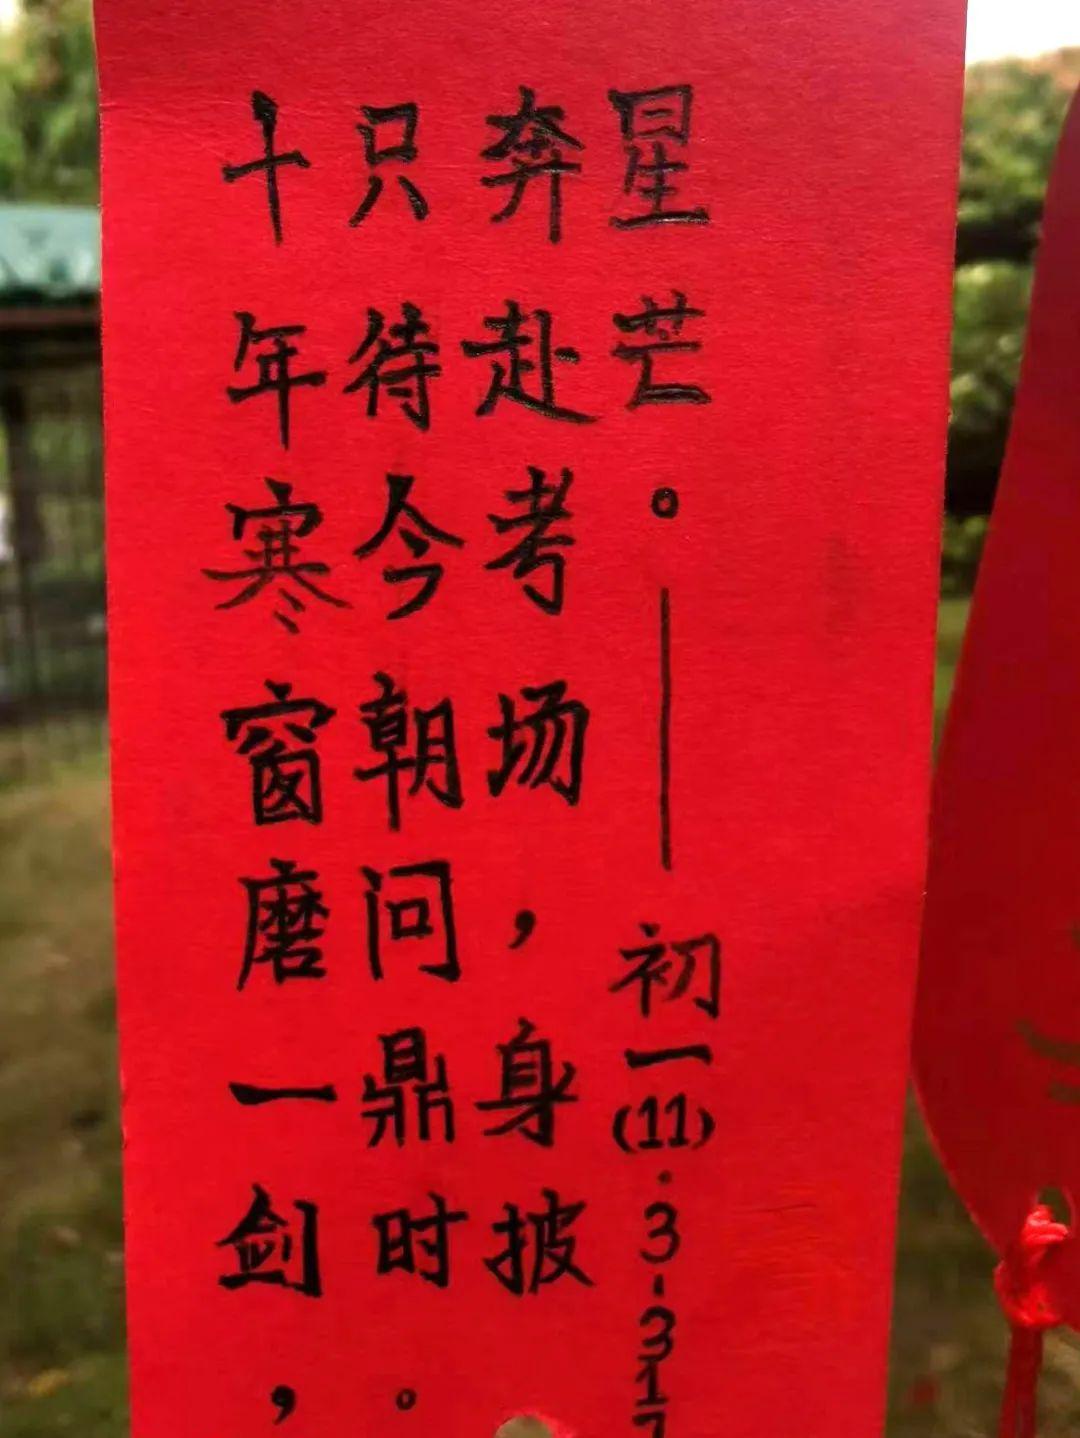 十年寒窗磨一剑，
只待今朝问鼎时。
奔赴考场，身披
星芒。——初一(11).3.31